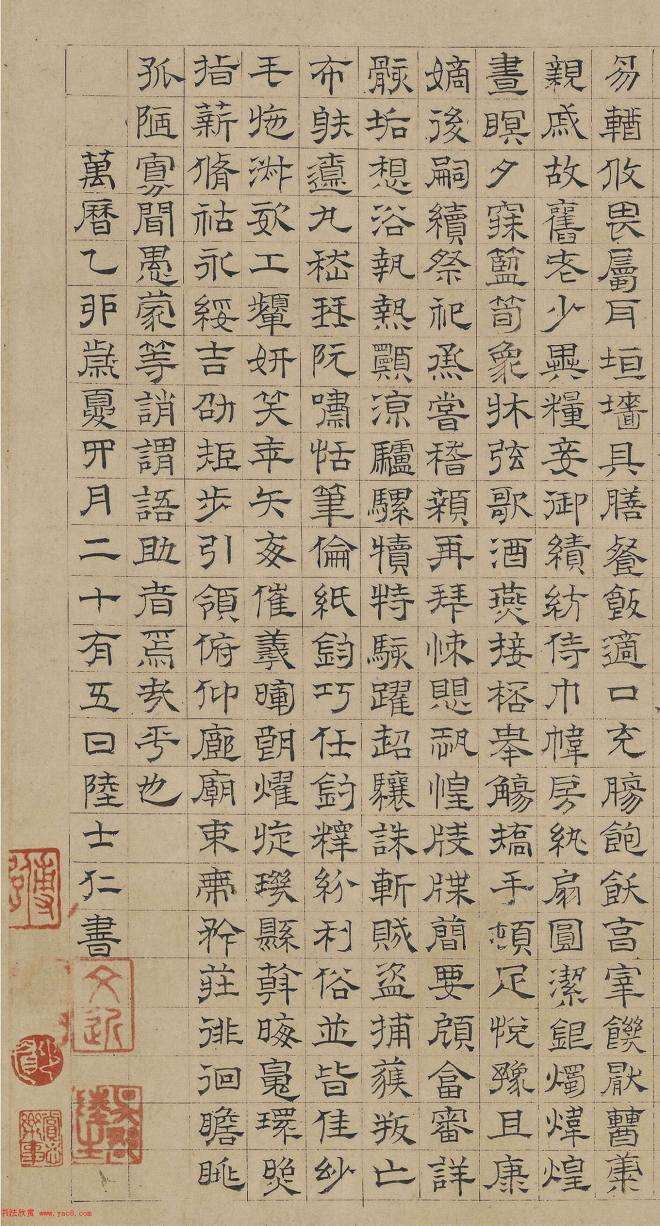 易輶攸畏屬耳垣墻具膳餐飯適口充腸飽飫亯宰饑厭糟糠
親戚故舊老少異糧妾御績紡侍巾帷房紈扇圓潔銀燭煒煌
晝瞑夕寐籃筍象牀弦歌酒燕接桮舉觴矯手頓足悅豫且康
嫡後嗣續祭祀烝嘗稽顙再拜悚懼恐惶牋牒簡要顧畣審詳
骸垢想浴執熱願涼驢騾犢特駭躍超驤誅斬賊盜捕獲叛亡
布射遼丸嵇琴阮嘯恬筆倫紙鈞巧任鈞釋紛利俗並皆佳妙
毛施淑姿工顰妍笑年矢每催羲暉朗燿旋璣縣斡晦魄環照
指薪脩祜永綏吉劭矩步引領俯仰廊廟束帶矜莊徘徊瞻眺
孤陋寡聞愚蒙等誚謂語助者焉哉乎也
萬曆乙卯歲夏四月二十有五日陸士仁書
文近
书法欣赏 www.yac8.com